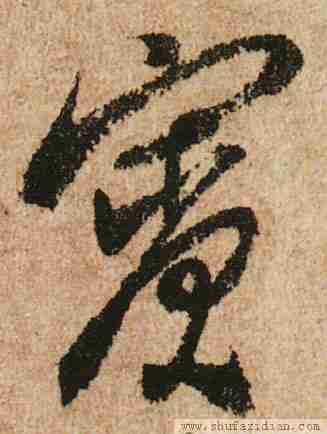 賓
www.shufazidian.com